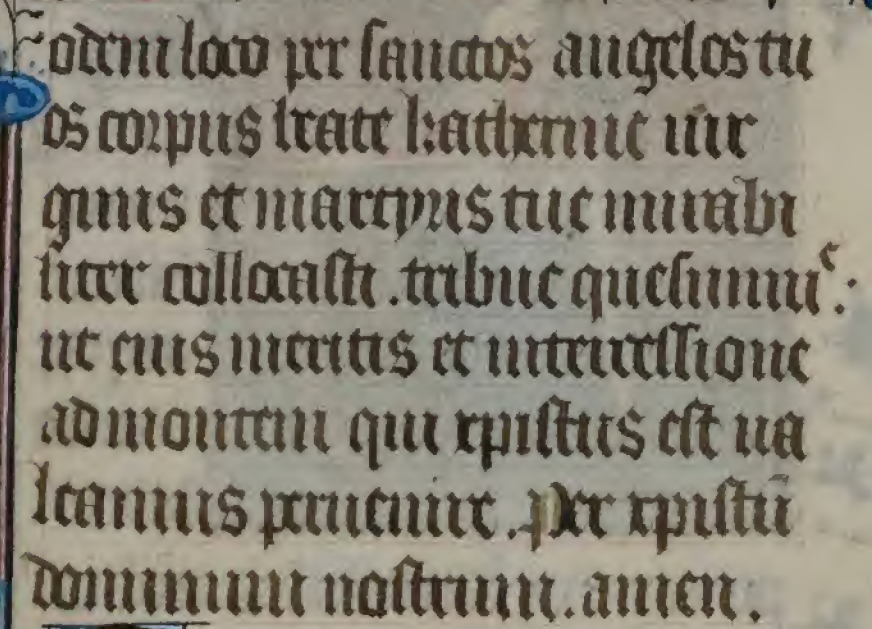 odem loco per sanctos angelos tu
os corpus beate katherine uir
ginis et martyris tue mirabi
liter collocasti . tribue quesumus :
ut eius meritis et intercessione
ad montem qui xpistus est ua
leamus peruenire . Per xpistū
dominum nostrum . amen .